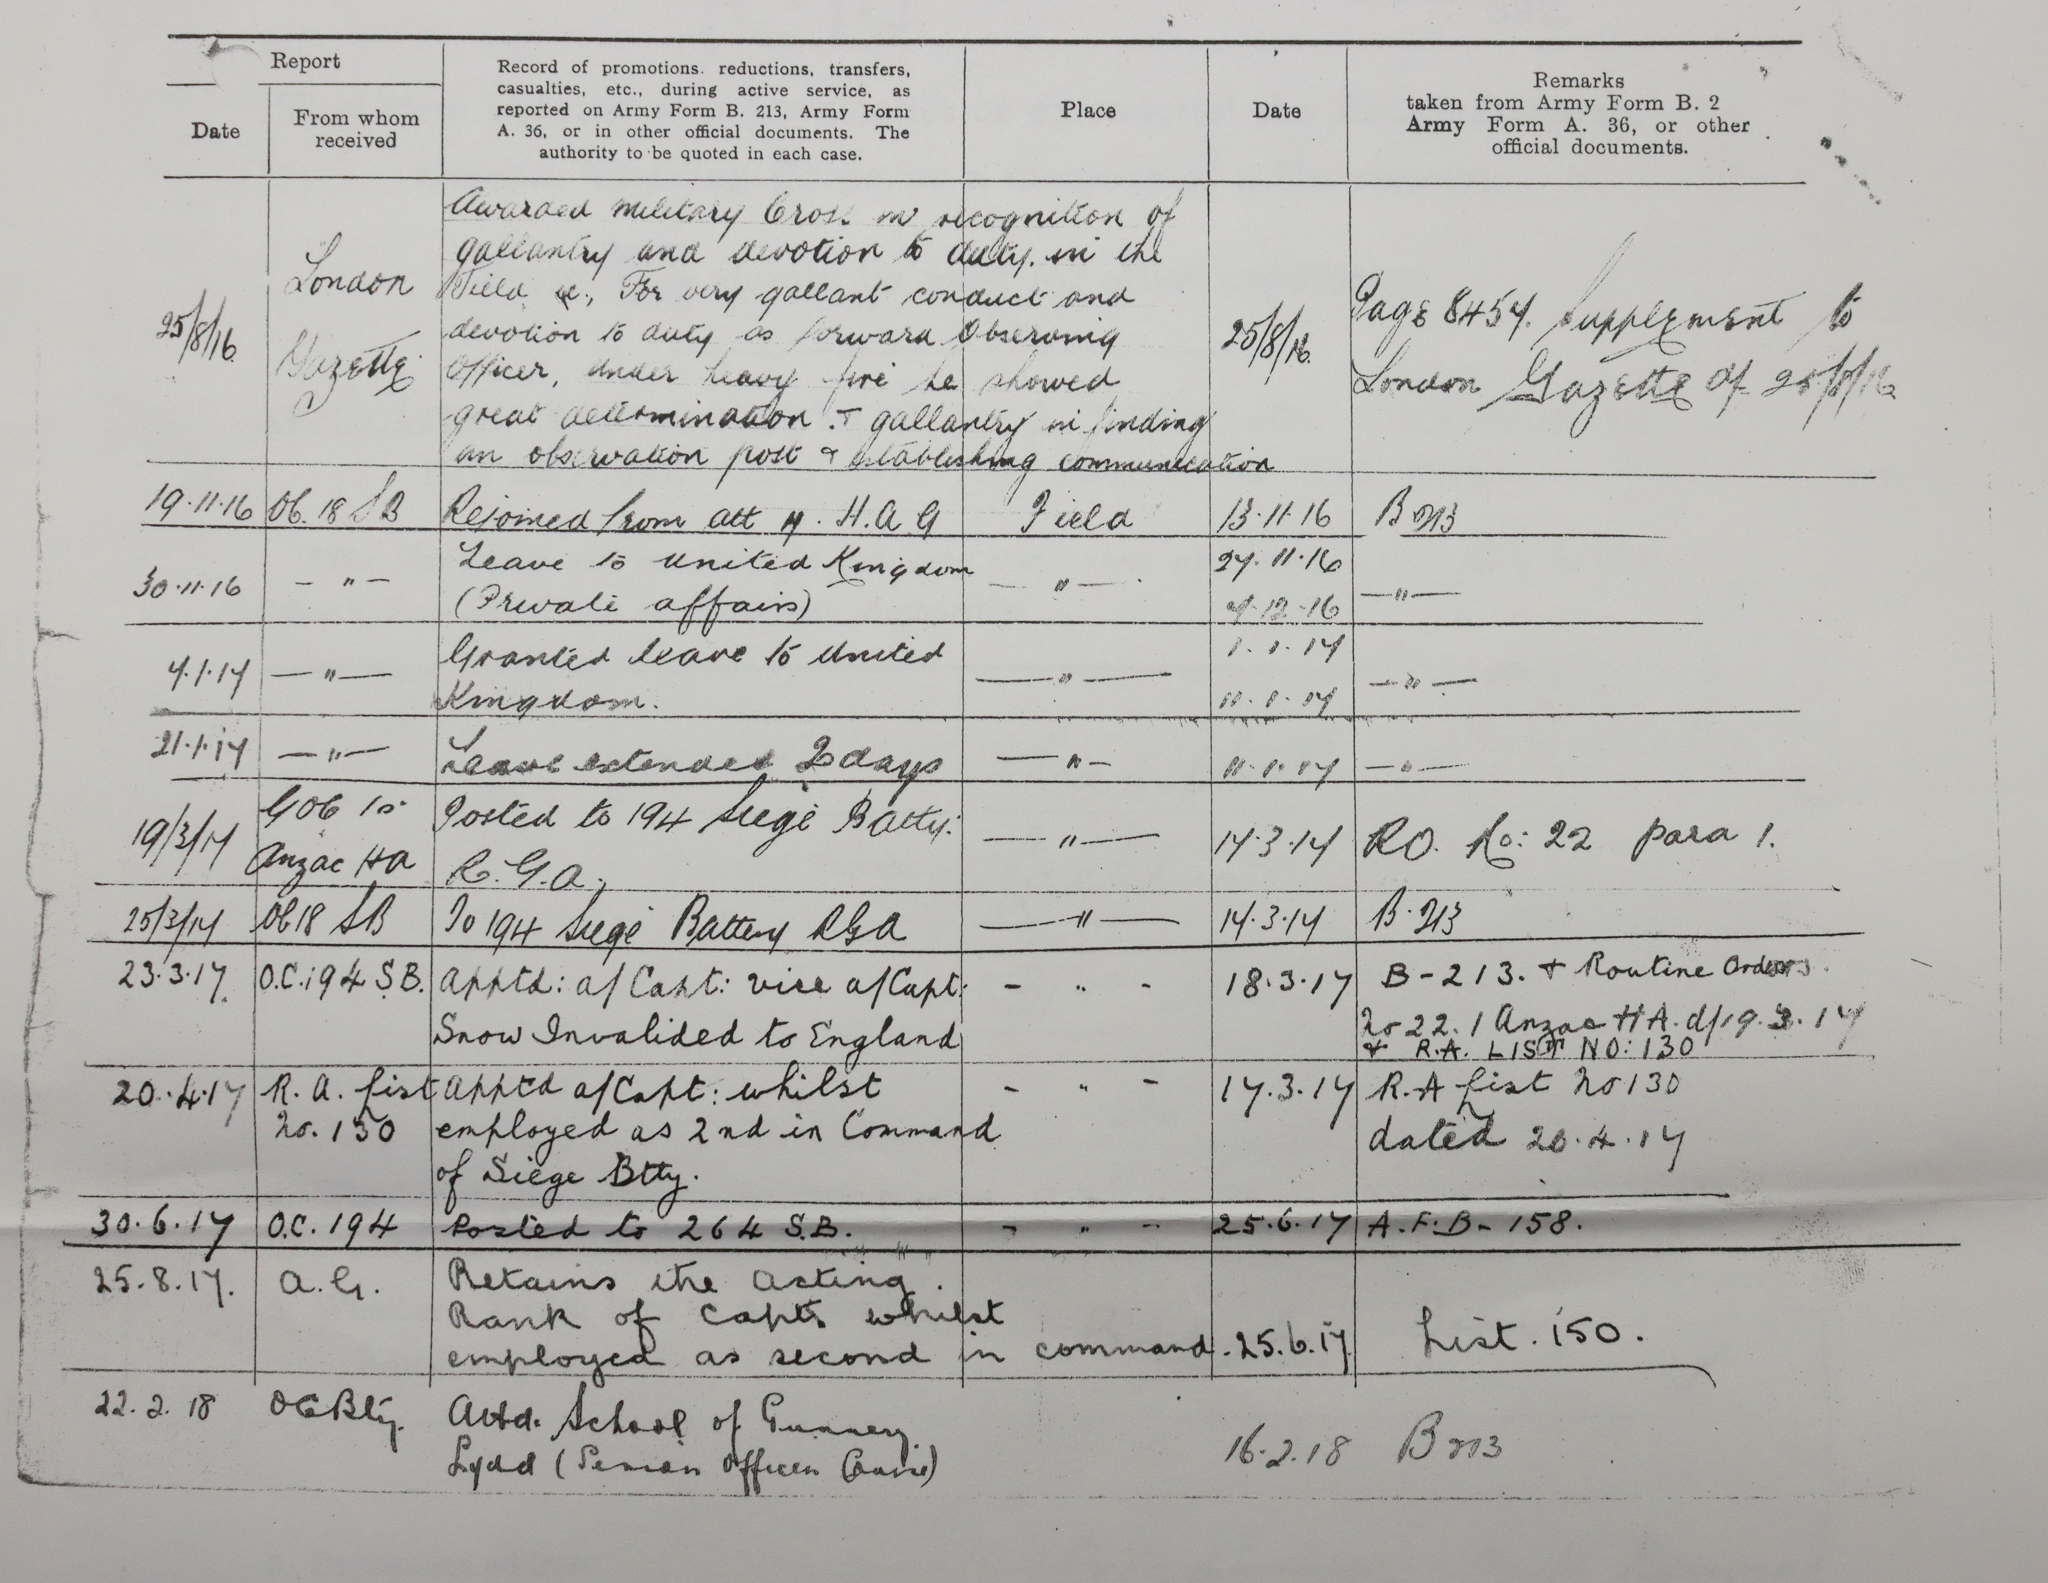 Report
Date
From whom
received
Record of promotions. reductions, transfers,
casualties, etc., during active service, as
reported on Army Form B. 213, Army Form
A. 36, or in other official documents. The
authority to be quoted in each case.
Place
Date
Remarks
taken from Army Form B. 2
Army Form A. 36, or other
official documents.
25/8/16
London
Gazette
Awarded Military Cross in recognition of
gallantry and devotion to duty. in the
Field For very gallant conduct and
devotion to duty as forward Observing
Officer, under heavy fire he showed
great determination + gallantry in finding
an observation post + establishing communication
25/8/16
Page 8457. Supplement to
London Gazette of 25/8/16
19.11.16 OC. 18 SB Rejoined from att H.A.G Field 13.11.16 B213
30.11.16 — " — Leave to United Kingdom — " — 27.11.16 — " —
(Private affairs) 7.12.16
4.1.17 — " — Granted leave to United — " — 1.1.17 — " —
Kingdom. 11.1.17
21.1.17 — " — Leave extended 2 days — " — 11.1.17 — " —
19/3/17 GOC 1st Posted to 194 Siege Batty: — " — 17.3.17 RO. No: 22 para 1.
Anzac HA R.G.A.
25/3/17 OC 18 SB To 194 Siege Battery RGA — " — 17.3.17 B.213
23.3.17. O.C. 194 S.B. Apptd: a/Capt: vice a/Capt: - " - 18.3.17 B-213. + Routine Orders.
Snow Invalided to England No 22. 1 Anzac HA. d/19.3.17
+ R.A. LIST NO: 130
20.4.17 R. A. List Apptd a/Capt: whilst - " - 17.3.17 R.A List No 130
No. 130 employed as 2nd in Command dated 20.4.17
of Siege Btty.
30.6.17 O.C. 194 Posted to 264 S.B. - " - 25.6.17 A.F.B- 158.
25.8.17. A.G. Retains the acting
Rank of Capt. whilst
employed as second in command. 25.6.17 List. 150.
22.2.18 OC Bty. Attd. School of Gunnery
Lydd (Senior Officers Course) 16.2.18 B213